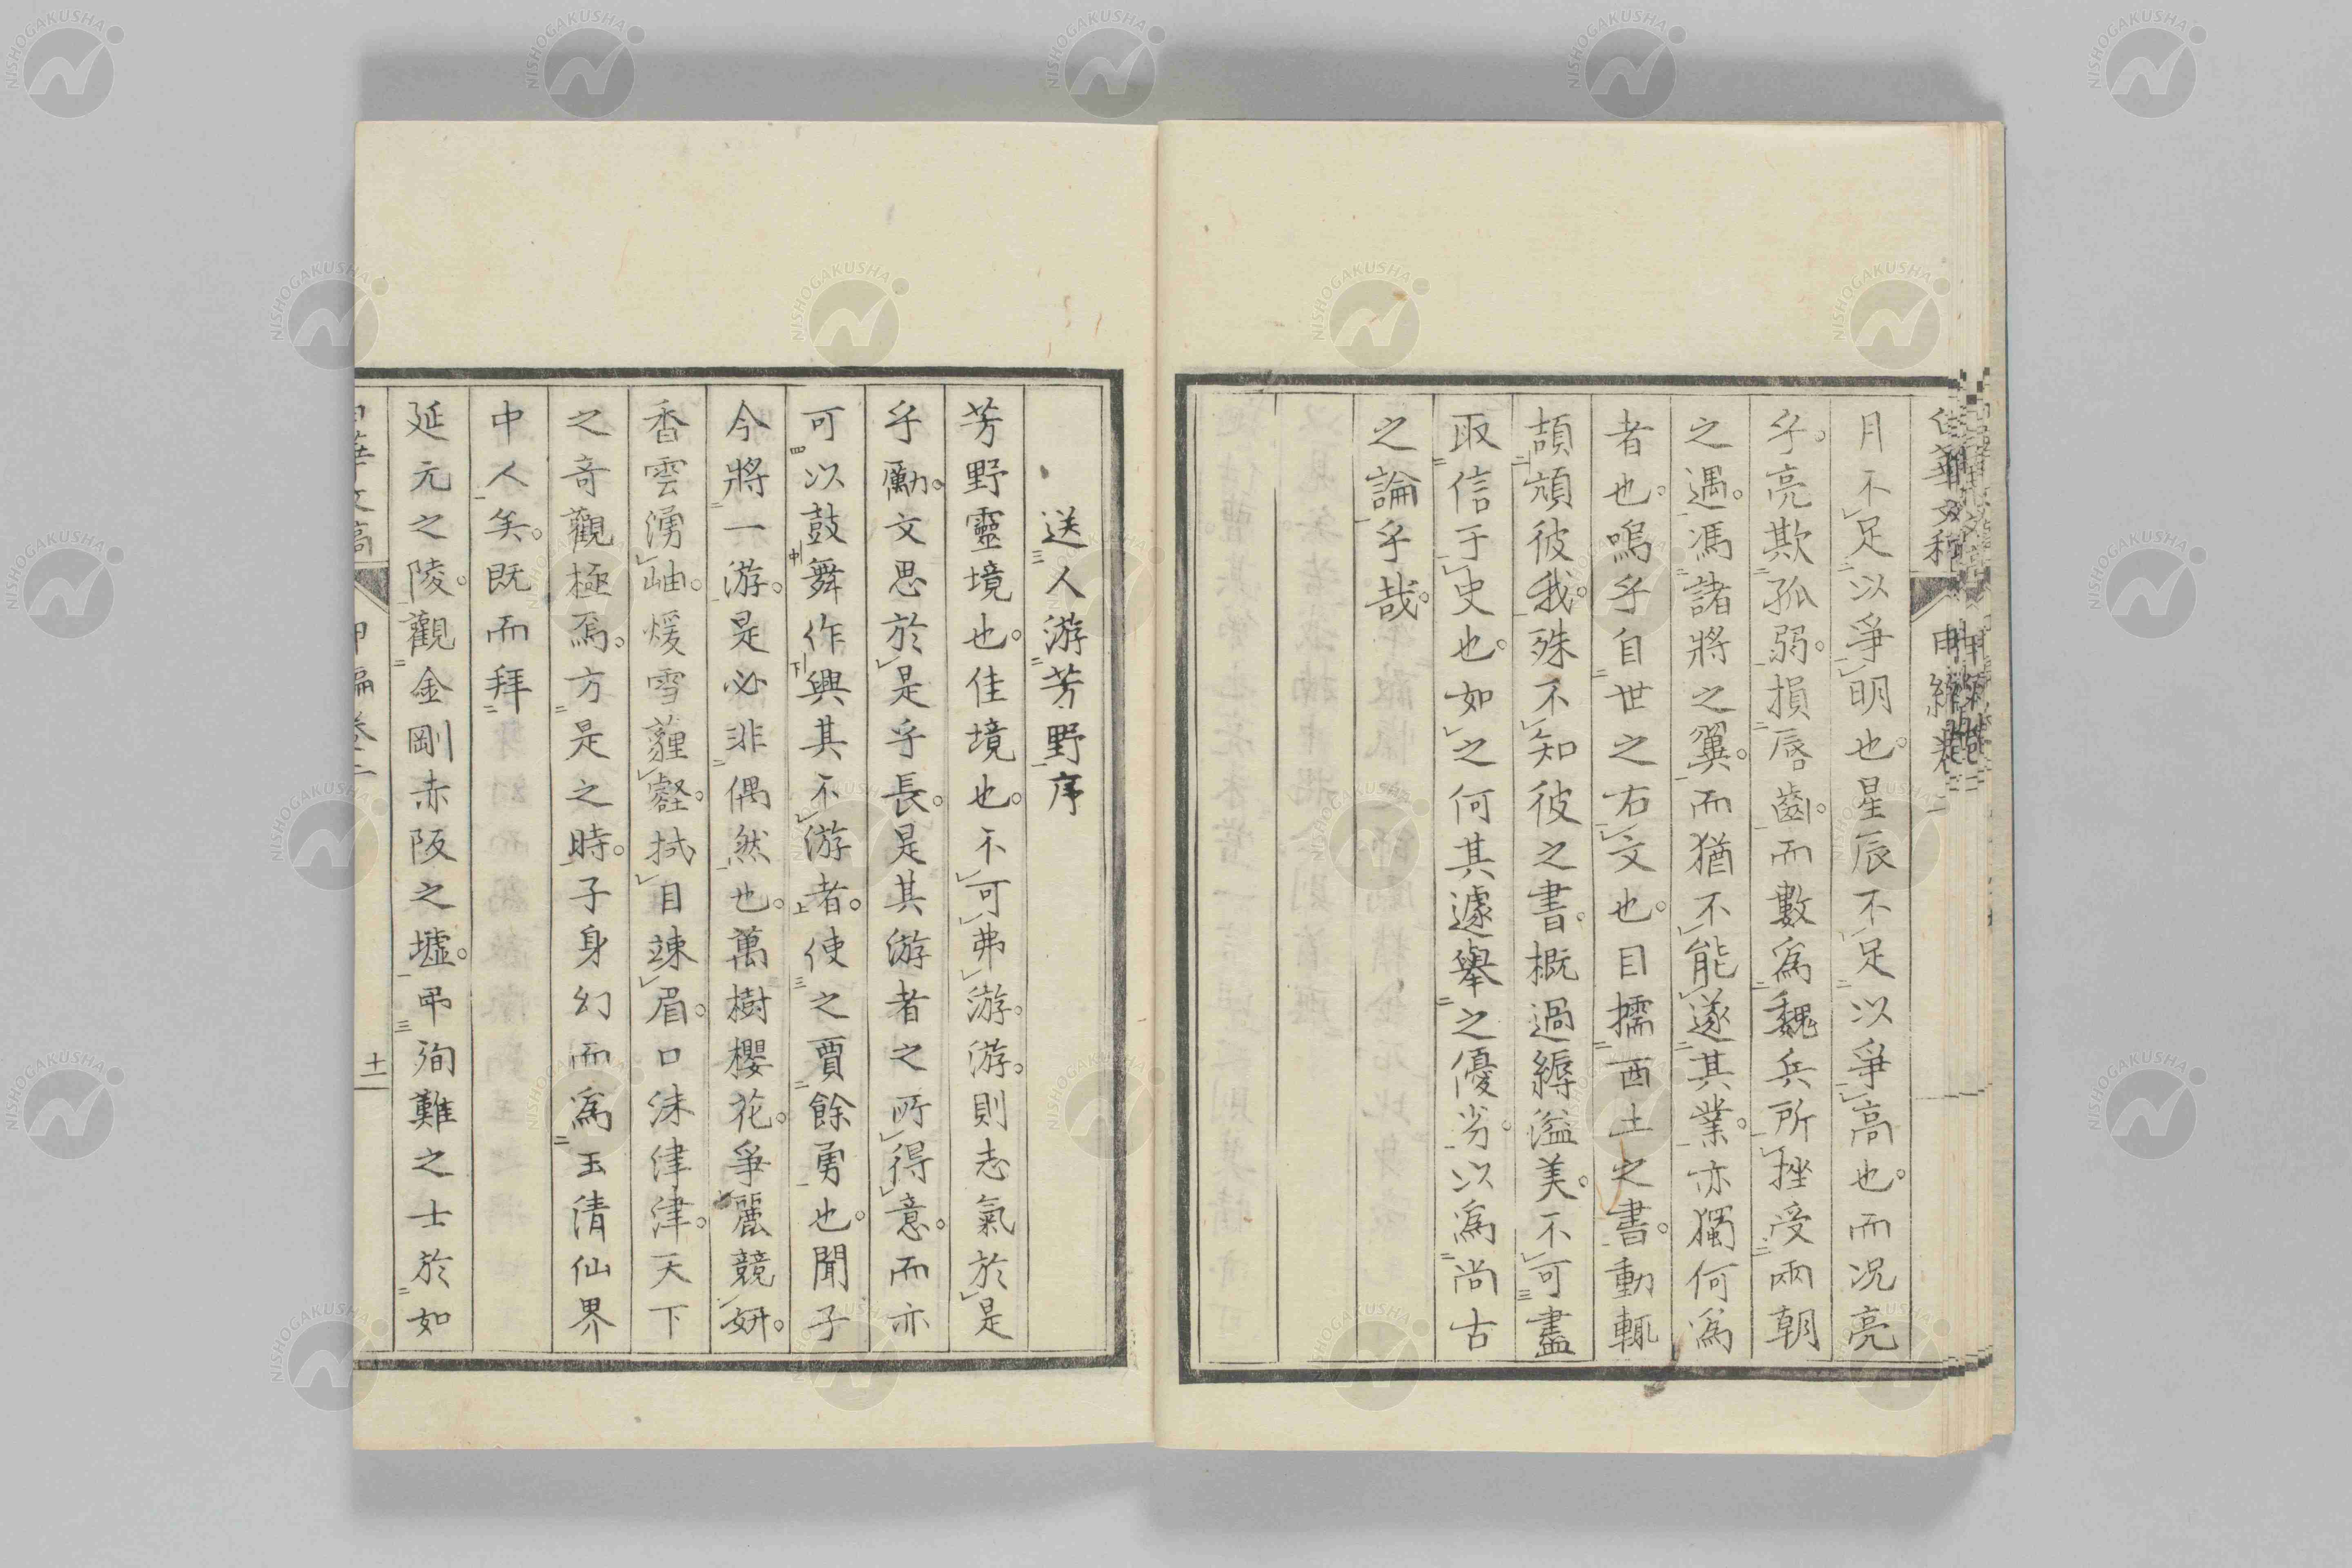 月不足以爭明也。星辰不足以爭高也。而况亮
乎。亮欺孤弱。損唇齒。而數爲魏兵所挫受兩朝
之遇。馮諸將之翼。而猶不能遂其業。亦獨何爲
者也。嗚乎自世之右文也。目擩西土之書。動輒
頡頏彼我。殊不知彼之書。概過縟溢美。不可盡
取信于史也。如之何其遽擧之優劣。以爲尚古
之論乎哉。
送人游芳野序
芳野靈境也。佳境也。不可弗游。游則志氣於是
乎勵。文思於是乎長。是其游者之所得意。而亦
可以鼓舞作興其不游者。使之賈餘勇也。聞子
今將一游。是必非偶然也。萬樹櫻花。爭麗競妍。
香雲湧岫。煖雪薶壑。拭目竦眉。口沫津津。天下
之奇觀極焉。方是之時。子身幻而爲玉清仙界
中人矣。既而拜
延元之陵。觀金剛赤阪之墟。弔殉難之士於如
十一
NISHOGAKUSHA